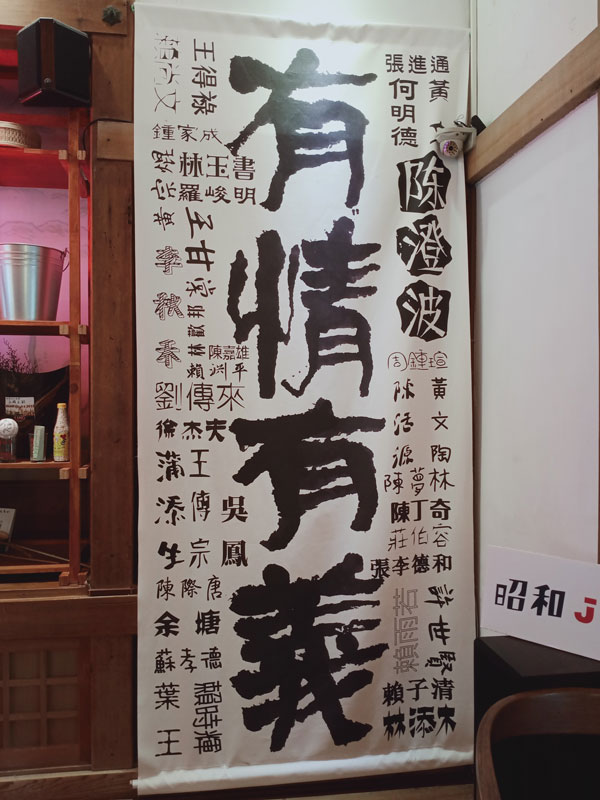 有情有義
通
進
張
黃
何明德
陳澄波
周鍾瑄
黃文陶
陳活源
林
陳夢
奇
陳丁
容
莊伯
和
張李德
許世賢
賴雨若
清
賴子
林添木
王得祿
鍾家成
林玉書
羅峻明
王甘棠
李秋
黃
陳嘉雄
賴淵平
劉傳來
徐杰夫
蒲添生
王傳宗
吳鳳
陳際唐
余塘
蘇孝德
葉王
賴時輝
昭和J